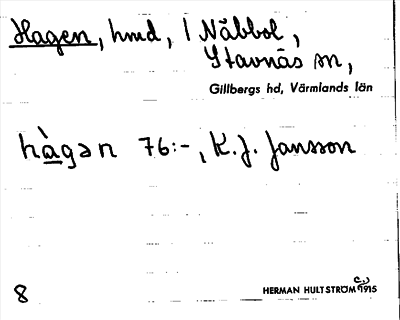 Hagen, hmd, 1 Näbbol,
Stavnäs sn,
Gillbergs hd, Värmlands län
hàgən 76:-, K. J. Jansson
8
HERMAN HULTSTRÖM 1915